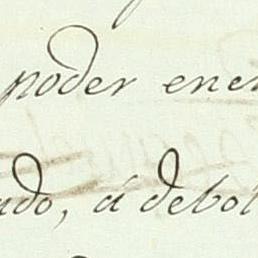 poder ene
ado, á debol